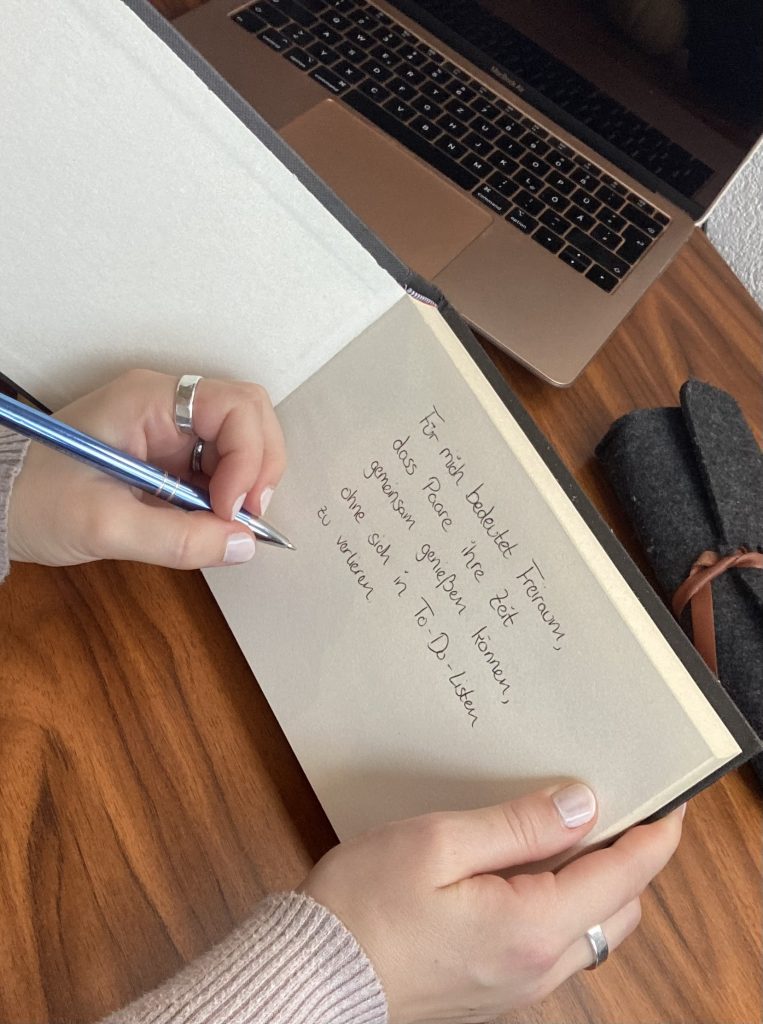 Für mich bedeutet Freiraum,
dass Paare ihre Zeit
gemeinsam genießen können,
ohne sich in To-Do-Listen
zu verlieren.
MacBook Air
command
option